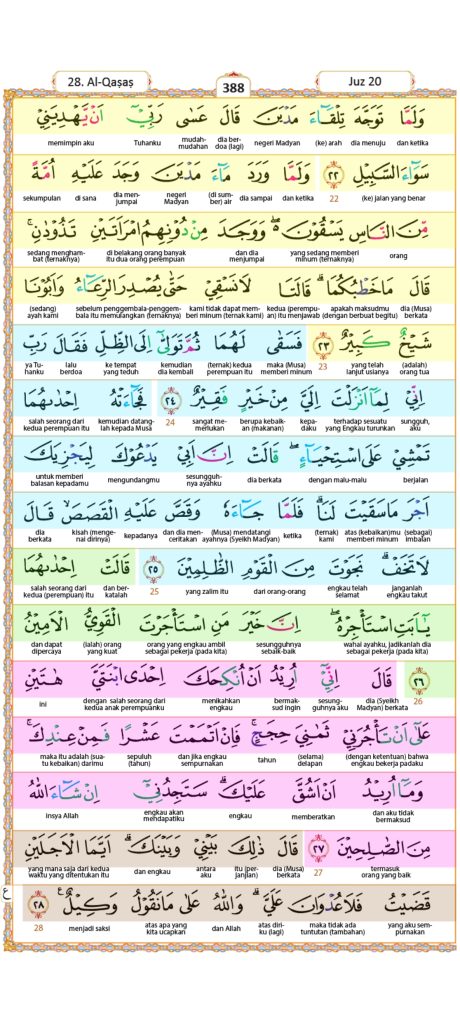 28. Al-Qaṣaṣ
388
Juz 20
وَلَمَّا تَوَجَّهَ تِلْقَاۤءَ مَدْيَنَ قَالَ عَسٰى رَبِّيْٓ اَنْ يَّهْدِيَنِيْ
dan ketika dia menuju (ke) arah negeri Madyan dia ber-doa (lagi) mudah-mudahan Tuhanku memimpin aku
سَوَاۤءَ السَّبِيْلِ ﴿٢٢﴾ وَلَمَّا وَرَدَ مَاۤءَ مَدْيَنَ وَجَدَ عَلَيْهِ اُمَّةً
(ke) jalan yang benar 22 dan ketika dia sampai (di sum-ber) air negeri Madyan dia men-jumpai di sana sekumpulan
مِّنَ النَّاسِ يَسْقُوْنَ ەۖ وَوَجَدَ مِنْ دُوْنِهِمُ امْرَاَتَيْنِ تَذُوْدٰنِۚ
orang yang sedang memberi minum (ternak) dan dia menjumpai di belakang orang banyak itu dua orang perempuan sedang mengham-bat (ternaknya)
قَالَ مَا خَطْبُكُمَاۗ قَالَتَا لَا نَسْقِيْ حَتّٰى يُصْدِرَ الرِّعَاۤءُ وَاَبُوْنَا
dia (Musa) berkata apakah maksudmu (dengan berbuat begitu) kedua (perempu-an) itu menjawab kami tidak dapat mem-beri minum (ternak kami) sebelum penggembala-penggem-bala itu memulangkan (ternaknya) (sedang) ayah kami
شَيْخٌ كَبِيْرٌ ﴿٢٣﴾ فَسَقٰى لَهُمَا ثُمَّ تَوَلّٰىٓ اِلَى الظِّلِّ فَقَالَ رَبِّ
(adalah) orang tua yang telah lanjut usianya 23 maka (Musa) memberi minum (ternak) kedua perempuan itu kemudian dia kembali ke tempat yang teduh lalu berdoa ya Tu-hanku
اِنِّيْ لِمَآ اَنْزَلْتَ اِلَيَّ مِنْ خَيْرٍ فَقِيْرٌ ﴿٢٤﴾ فَجَاۤءَتْهُ اِحْدٰىهُمَا
sungguh, aku terhadap sesuatu yang Engkau turunkan kepa-daku berupa kebaik-an (makanan) sangat me-merlukan 24 kemudian datang-lah kepada Musa salah seorang dari kedua perempuan itu
تَمْشِيْ عَلَى اسْتِحْيَاۤءٍۖ قَالَتْ اِنَّ اَبِيْ يَدْعُوْكَ لِيَجْزِيَكَ
berjalan dengan malu-malu dia berkata sesungguh-nya ayahku mengundangmu untuk memberi balasan kepadamu
اَجْرَ مَا سَقَيْتَ لَنَاۗ فَلَمَّا جَاۤءَهٗ وَقَصَّ عَلَيْهِ الْقَصَصَۙ قَالَ
(sebagai) imbalan atas (kebaikan)mu memberi minum (ternak) kami ketika (Musa) mendatangi ayahnya (Syeikh Madyan) dan dia men-ceritakan kepadanya kisah (menge-nai dirinya) dia berkata
لَا تَخَفْۗ نَجَوْتَ مِنَ الْقَوْمِ الظّٰلِمِيْنَ ﴿٢٥﴾ قَالَتْ اِحْدٰىهُمَا
janganlah engkau takut engkau telah selamat dari orang-orang yang zalim itu 25 dan ber-katalah salah seorang dari kedua (perempuan) itu
يٰٓاَبَتِ اسْتَأْجِرْهُۖ اِنَّ خَيْرَ مَنِ اسْتَأْجَرْتَ الْقَوِيُّ الْاَمِيْنُ
wahai ayahku, jadikanlah dia sebagai pekerja (pada kita) sesungguhnya sebaik-baik orang yang engkau ambil sebagai pekerja (pada kita) (ialah) orang yang kuat dan dapat dipercaya
﴿٢٦﴾ قَالَ اِنِّيْٓ اُرِيْدُ اَنْ اُنْكِحَكَ اِحْدَى ابْنَتَيَّ هٰتَيْنِ
26 dia (Syeikh Madyan) berkata sesung-guhnya aku bermak-sud ingin menikahkan engkau dengan salah seorang dari kedua anak perempuanku ini
عَلٰٓى اَنْ تَأْجُرَنِيْ ثَمٰنِيَ حِجَجٍۚ فَاِنْ اَتْمَمْتَ عَشْرًا فَمِنْ عِنْدِكَۚ
(dengan ketentuan) bahwa engkau bekerja padaku (selama) delapan tahun dan jika engkau sempurnakan sepuluh (tahun) maka itu adalah (sua-tu kebaikan) darimu
وَمَآ اُرِيْدُ اَنْ اَشُقَّ عَلَيْكَۗ سَتَجِدُنِيْٓ اِنْ شَاۤءَ اللّٰهُ
dan aku tidak bermaksud memberatkan engkau engkau akan mendapatiku insya Allah
مِنَ الصّٰلِحِيْنَ ﴿٢٧﴾ قَالَ ذٰلِكَ بَيْنِيْ وَبَيْنَكَۗ اَيَّمَا الْاَجَلَيْنِ
termasuk orang yang baik 27 dia (Musa) berkata itu (per-janjian) antara aku dan engkau yang mana saja dari kedua waktu yang ditentukan itu
قَضَيْتُ فَلَا عُدْوَانَ عَلَيَّۗ وَاللّٰهُ عَلٰى مَا نَقُوْلُ وَكِيْلٌ ﴿٢٨﴾ ع
yang aku sem-purnakan maka tidak ada tuntutan (tambahan) atas diri-ku (lagi) dan Allah atas apa yang kita ucapkan menjadi saksi 28